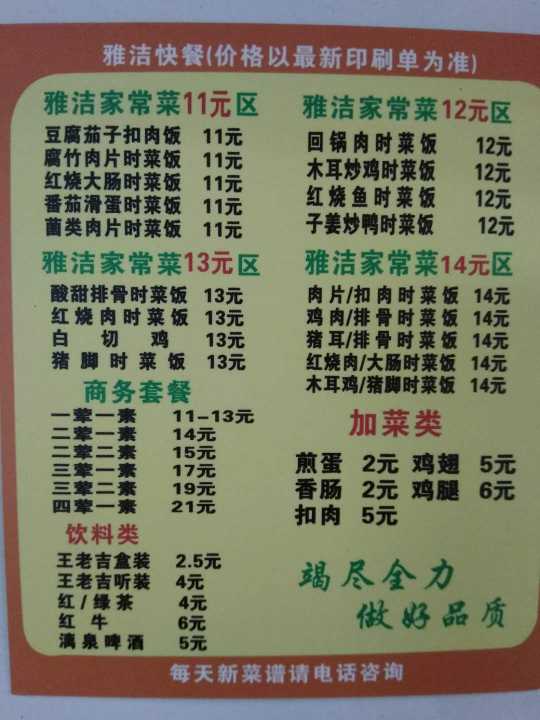 雅洁快餐(价格以最新印刷单为准)
雅洁家常菜11元区
豆腐茄子扣肉饭 11元
腐竹肉片时菜饭 11元
红烧大肠时菜饭 11元
番茄滑蛋时菜饭 11元
菌类肉片时菜饭 11元
雅洁家常菜12元区
回锅肉时菜饭 12元
木耳炒鸡时菜饭 12元
红烧鱼时菜饭 12元
子姜炒鸭时菜饭 12元
雅洁家常菜13元区
酸甜排骨时菜饭 13元
红烧肉时菜饭 13元
白切鸡 13元
猪脚时菜饭 13元
雅洁家常菜14元区
肉片/扣肉时菜饭 14元
鸡肉/排骨时菜饭 14元
猪耳/排骨时菜饭 14元
红烧肉/大肠时菜饭 14元
木耳鸡/猪脚时菜饭 14元
商务套餐
一荤一素 11-13元
二荤一素 14元
二荤二素 15元
三荤一素 17元
三荤二素 19元
四荤一素 21元
加菜类
煎蛋 2元 鸡翅 5元
香肠 2元 鸡腿 6元
扣肉 5元
饮料类
王老吉盒装 2.5元
王老吉听装 4元
红/绿茶 4元
红牛 6元
漓泉啤酒 5元
竭尽全力
做好品质
每天新菜谱请电话咨询